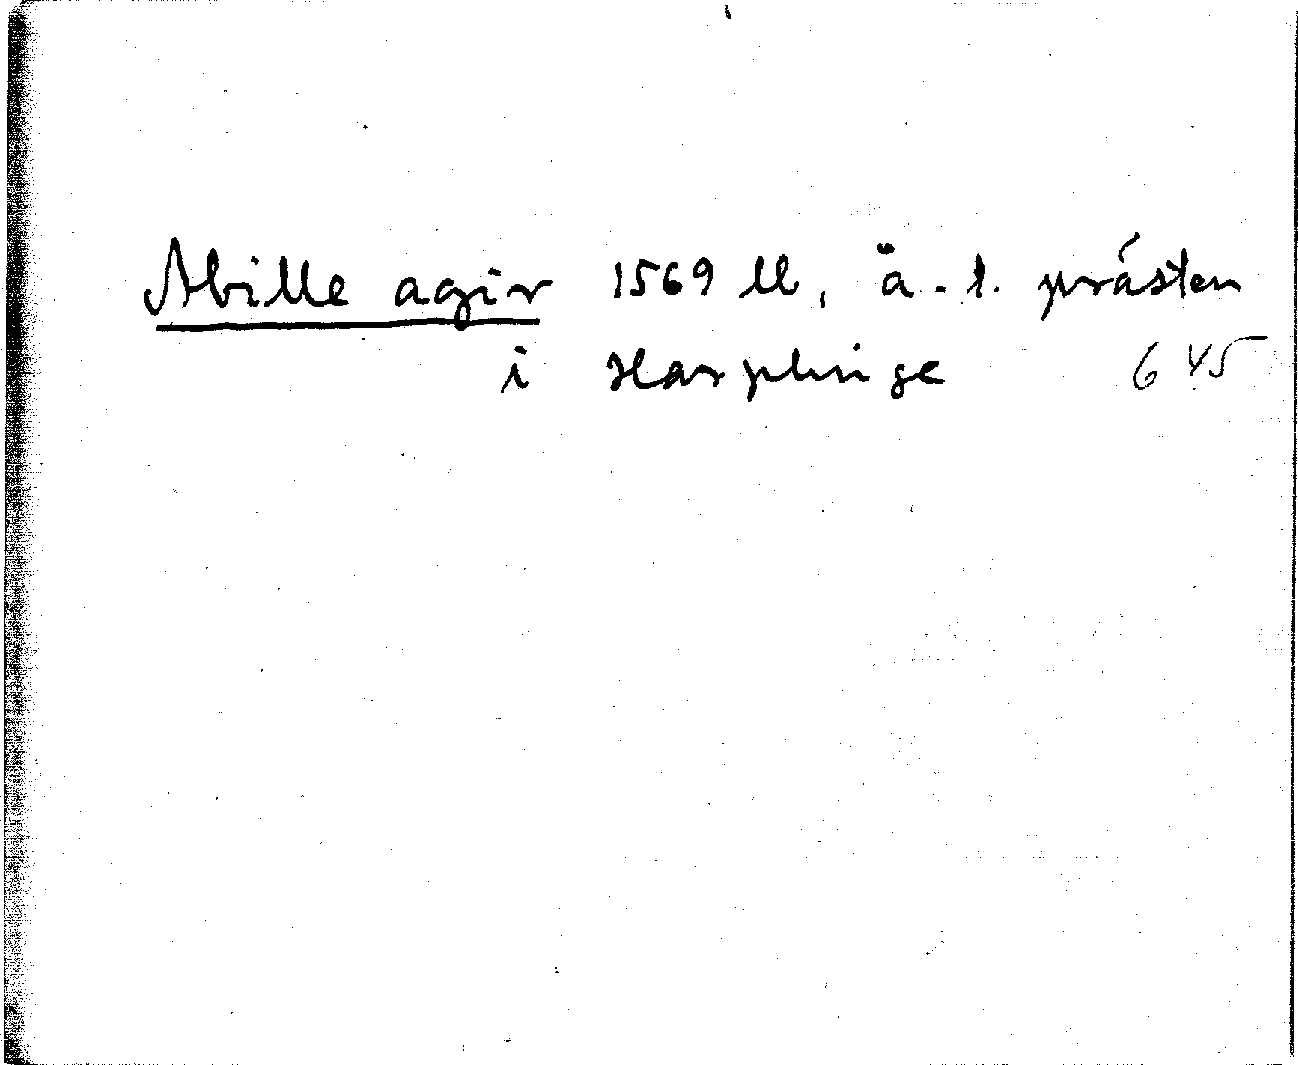 Abille agir 1569 ll, ä.l. prästen
i Harplinge 645